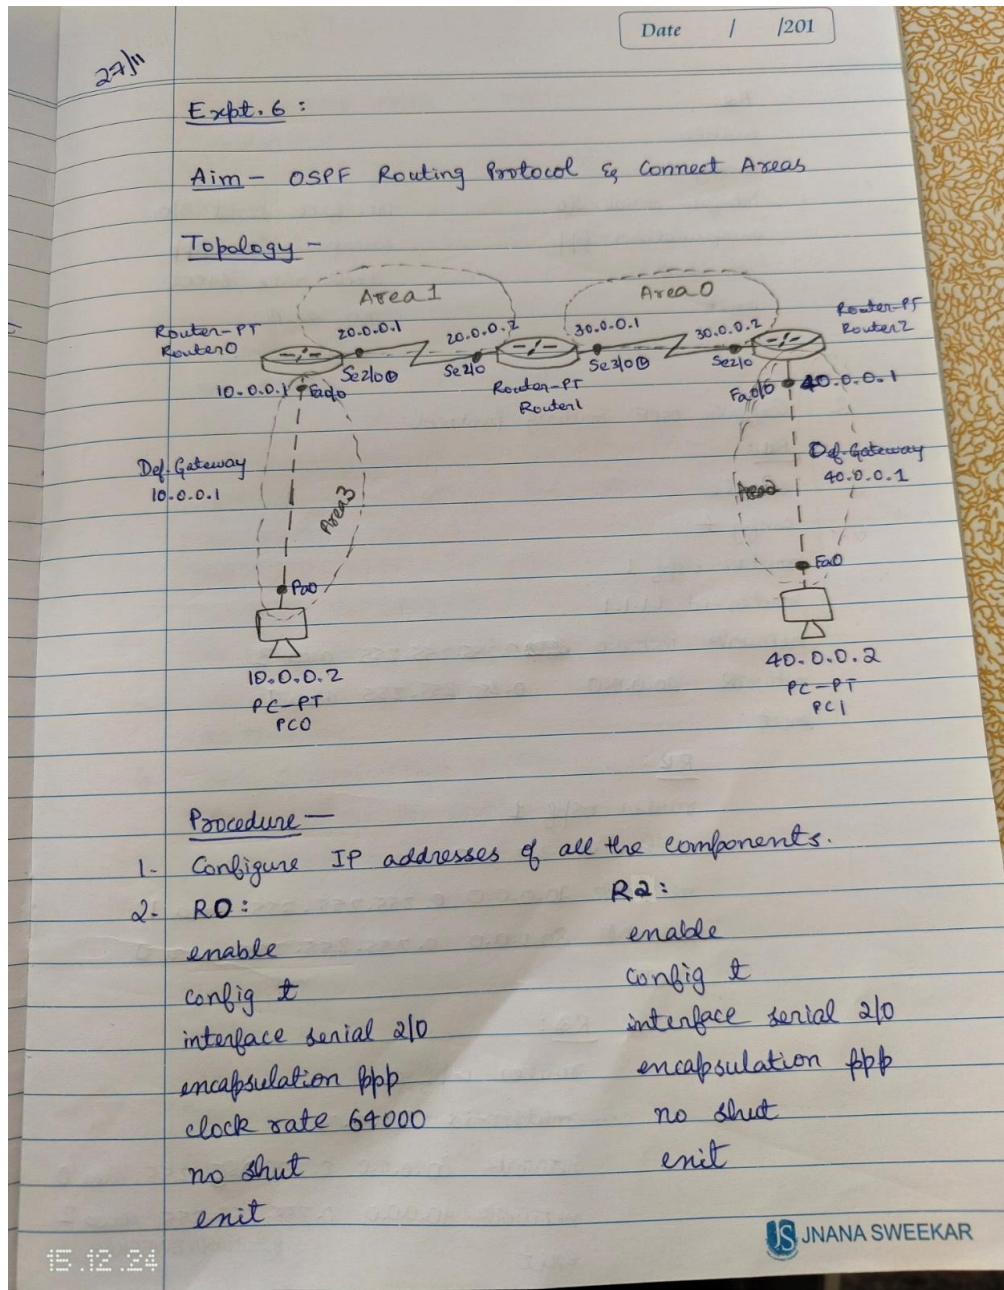 Date / /201
27/11
Expt. 6 :
Aim - OSPF Routing Protocol & Connect Areas
Topology -
Area 1
Area 0
Router-PT
Router0
20.0.0.1
20.0.0.2
30.0.0.1
30.0.0.2
Router-PT
Router2
Se2/0
Se2/0
Router-PT
Router1
Se3/0
Se2/0
10.0.0.1
Fa0/0
Fa0/0
40.0.0.1
Def. Gateway
10.0.0.1
Area3
Def. Gateway
40.0.0.1
Area2
Fa0
Fa0
10.0.0.2
PC-PT
PC0
40.0.0.2
PC-PT
PC1
Procedure -
1. Configure IP addresses of all the components.
2. R0 :
enable
config t
interface serial 2/0
encapsulation ppp
clock rate 64000
no shut
exit
R2 :
enable
config t
interface serial 2/0
encapsulation ppp
no shut
exit
JS JNANA SWEEKAR
15.12.24